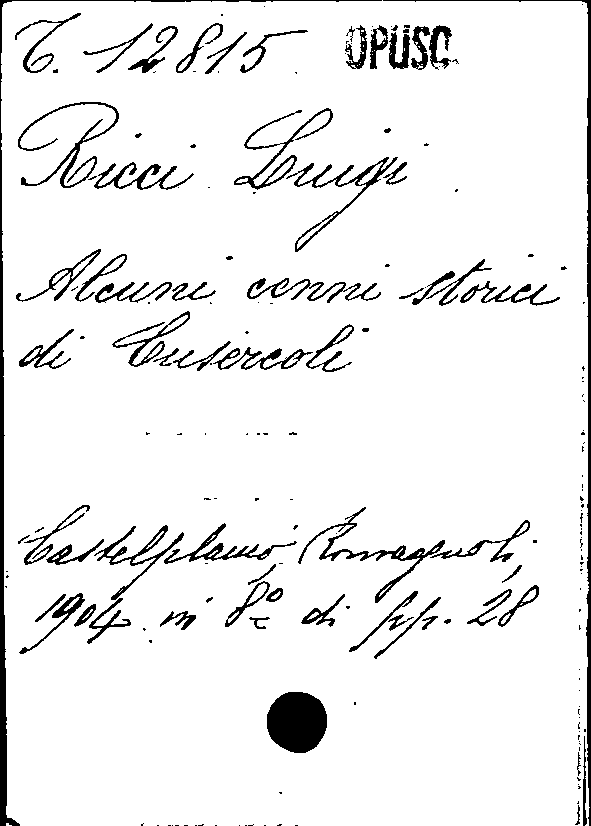 T. 12815 OPUSC.
Ricci Luigi
Alcuni cenni storici
di Cusercoli
Castelplanio, Romagnoli,
1904 in 8º di pp. 28